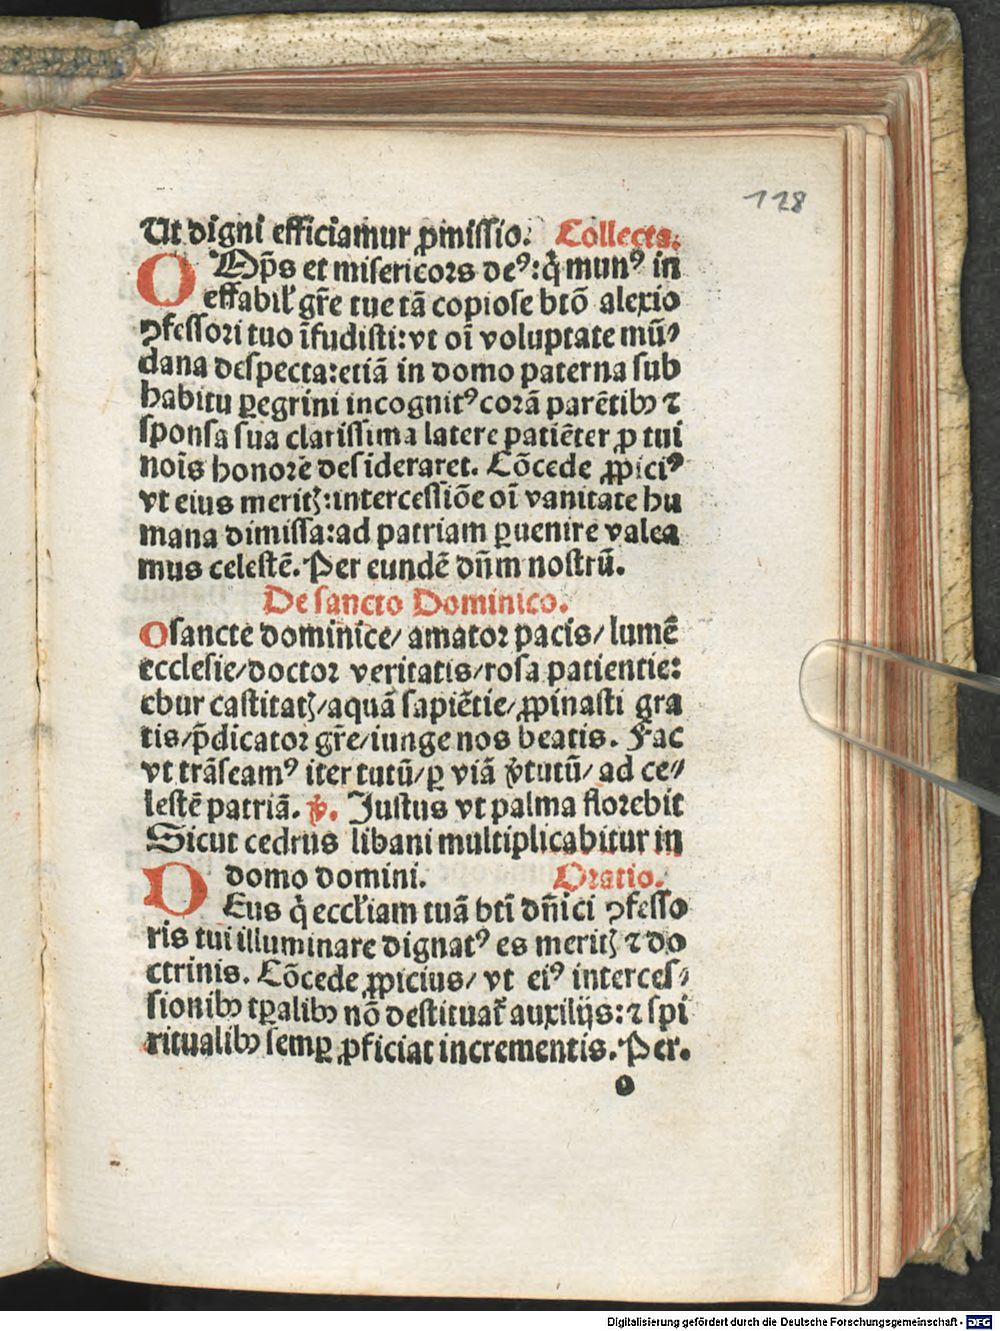 128
Ut digni efficiamur ꝓmissio. Collecta.
OMp̄s et misericors deꝰ: q̇ munꝰ in
effabil' gr̄e tue tā copiose btō alexio
ꝯfessori tuo īfudisti: vt oī voluptate mū⸗
dana despecta: etiā in domo paterna sub
habitu ꝑegrini incognitꝰ corā parētibꝫ ⁊
sponsa sua clarissima latere patiēter ꝓ tui
nois̄ honorē desideraret. Cōcede ꝓpiciꝰ
vt eius meritꝭ: intercessiōe oī vanitate hu
mana dimissa: ad patriam ꝑuenire valea
mus celestē. Per eundē dn̄m nostrū.
De sancto Dominico.
O sancte dominice/ amator pacis/ lumē
ecclesie/ doctor veritatis/ rosa patientie:
ebur castitatꝭ/ aquā sapiētie/ ꝓpinasti gra
tis/ p̄dicator gr̄e/ iunge nos beatis. Fac
vt trāseamꝰ iter tutū/ ꝑ viā v̓tutū/ ad ce⸗
lestē patriā. ℣. Justus vt palma florebit
Sicut cedrus libani multiplicabitur in
domo domini. Oratio.
DEus q̇ eccl'iam tuā btī dn̄ici ꝯfesso
ris tui illuminare dignatꝰ es meritꝭ ⁊ do
ctrinis. Cōcede ꝓpicius/ vt eiꝰ interces⸗
sionibꝫ tꝑalibꝫ nō destituat̄ auxilijs: ⁊ spi
ritualibꝫ semꝑ ꝓficiat incrementis. Per.
o
Digitalisierung gefördert durch die Deutsche Forschungsgemeinschaft - DFG